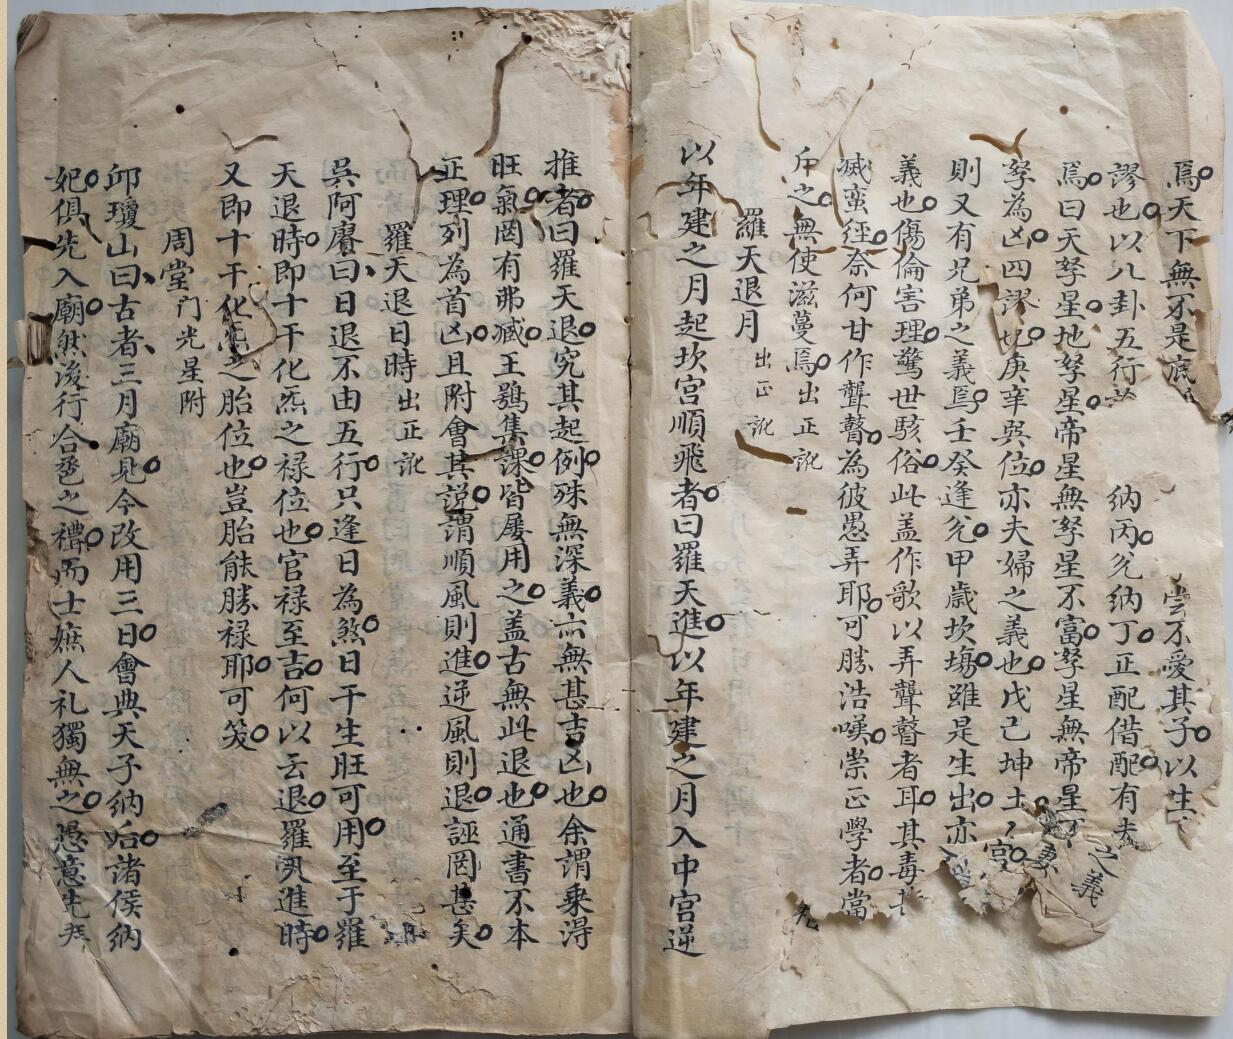 焉天下無不是底 尝不愛其子以生
謬也以八卦五行 納丙兊納丁正配借配有夫 之義
焉曰天孥星地孥星帝星無孥星不富孥星無帝星不
孥為凶四謬也庚辛巽位亦夫婦之義也戊己坤土 宮
則又有兄弟之義焉壬癸逢兊甲歲坎塲雖是生出亦
義也傷倫害理驚世駭俗此盖作歌以弄聾瞽者耳其毒
滅蛮經奈何甘作聾瞽為彼愚弄耶可勝浩嘆崇正學者當
斥之無使滋蔓焉出正訛
羅天退月 出正訛
以年建之月起坎宮順飛者曰羅天進以年建之月入中宮逆
推者曰羅天退究其起例殊無深義亦無甚吉凶也余謂乘得
旺氣罔有弗臧王鶚集課皆屡用之盖古無此退也通書不本
正理列為首凶且附會其説謂順風則進逆風則退誣罔甚矣
羅天退日時出正訛
吳阿廥曰日退不由五行只逢日為煞日干生旺可用至于羅
天退時即十干化炁之禄位也官禄至吉何以云退羅天進時
又即十干化炁之胎位也豈胎能勝禄耶可笑
周堂门光星附
邱瓊山曰古者三月廟見今改用三日會典天子納后諸侯納
妃俱先入廟然後行合卺之禮而士庶人礼獨無之愚意先拜